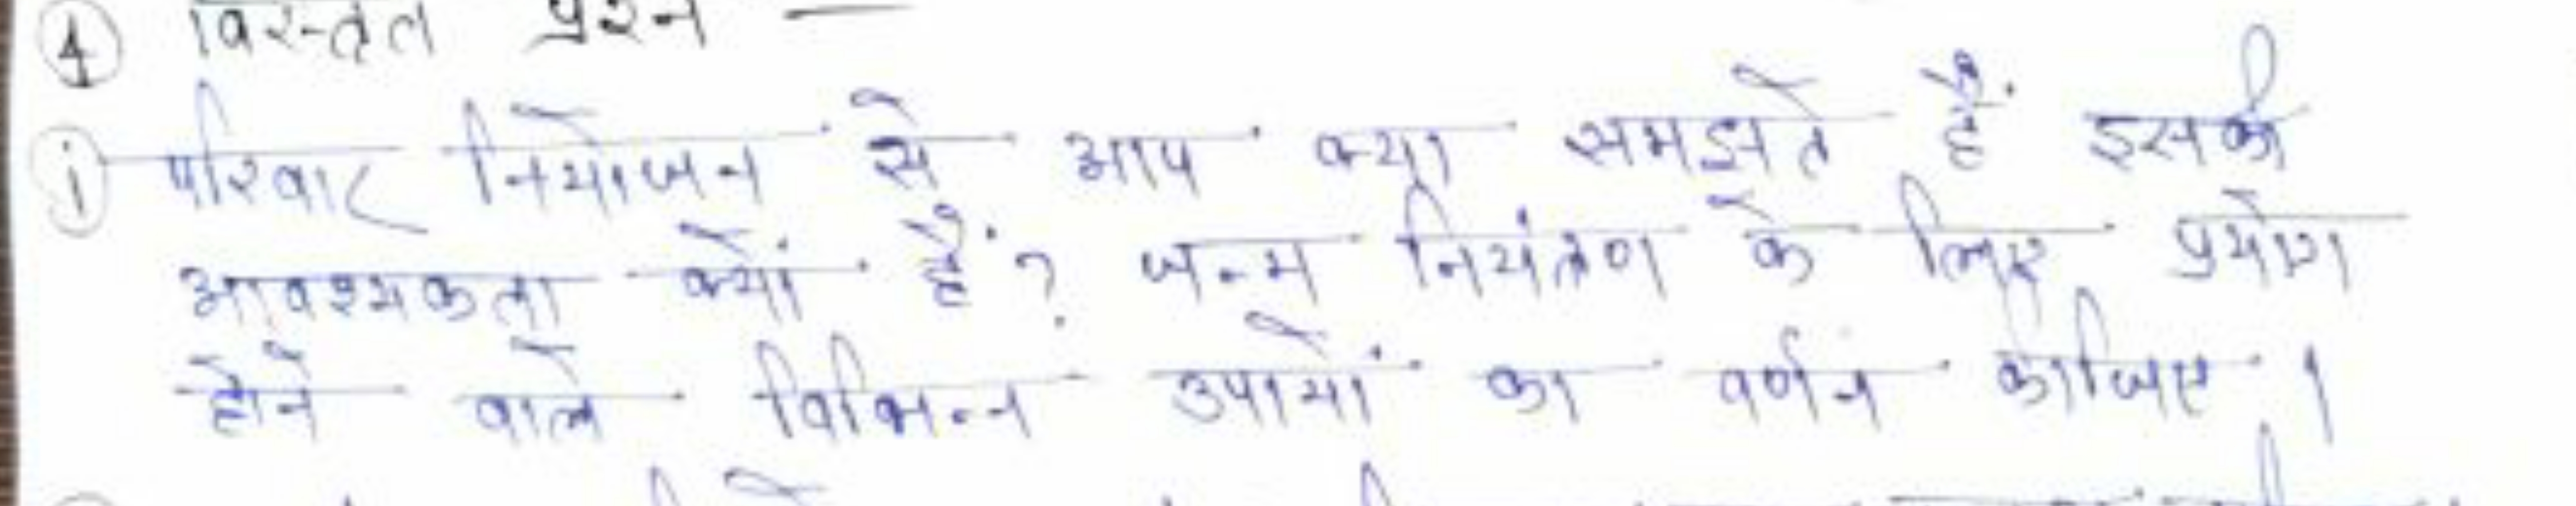 ④ विस्तृत प्रश्न —
ⓘ परिवार नियोजन से आप क्या समझते हैं इसकी
आवश्यकता क्यों हैं? जन्म नियंत्रण के लिए प्रयोग
होने वाले विभिन्न उपायों का वर्णन कीजिए।